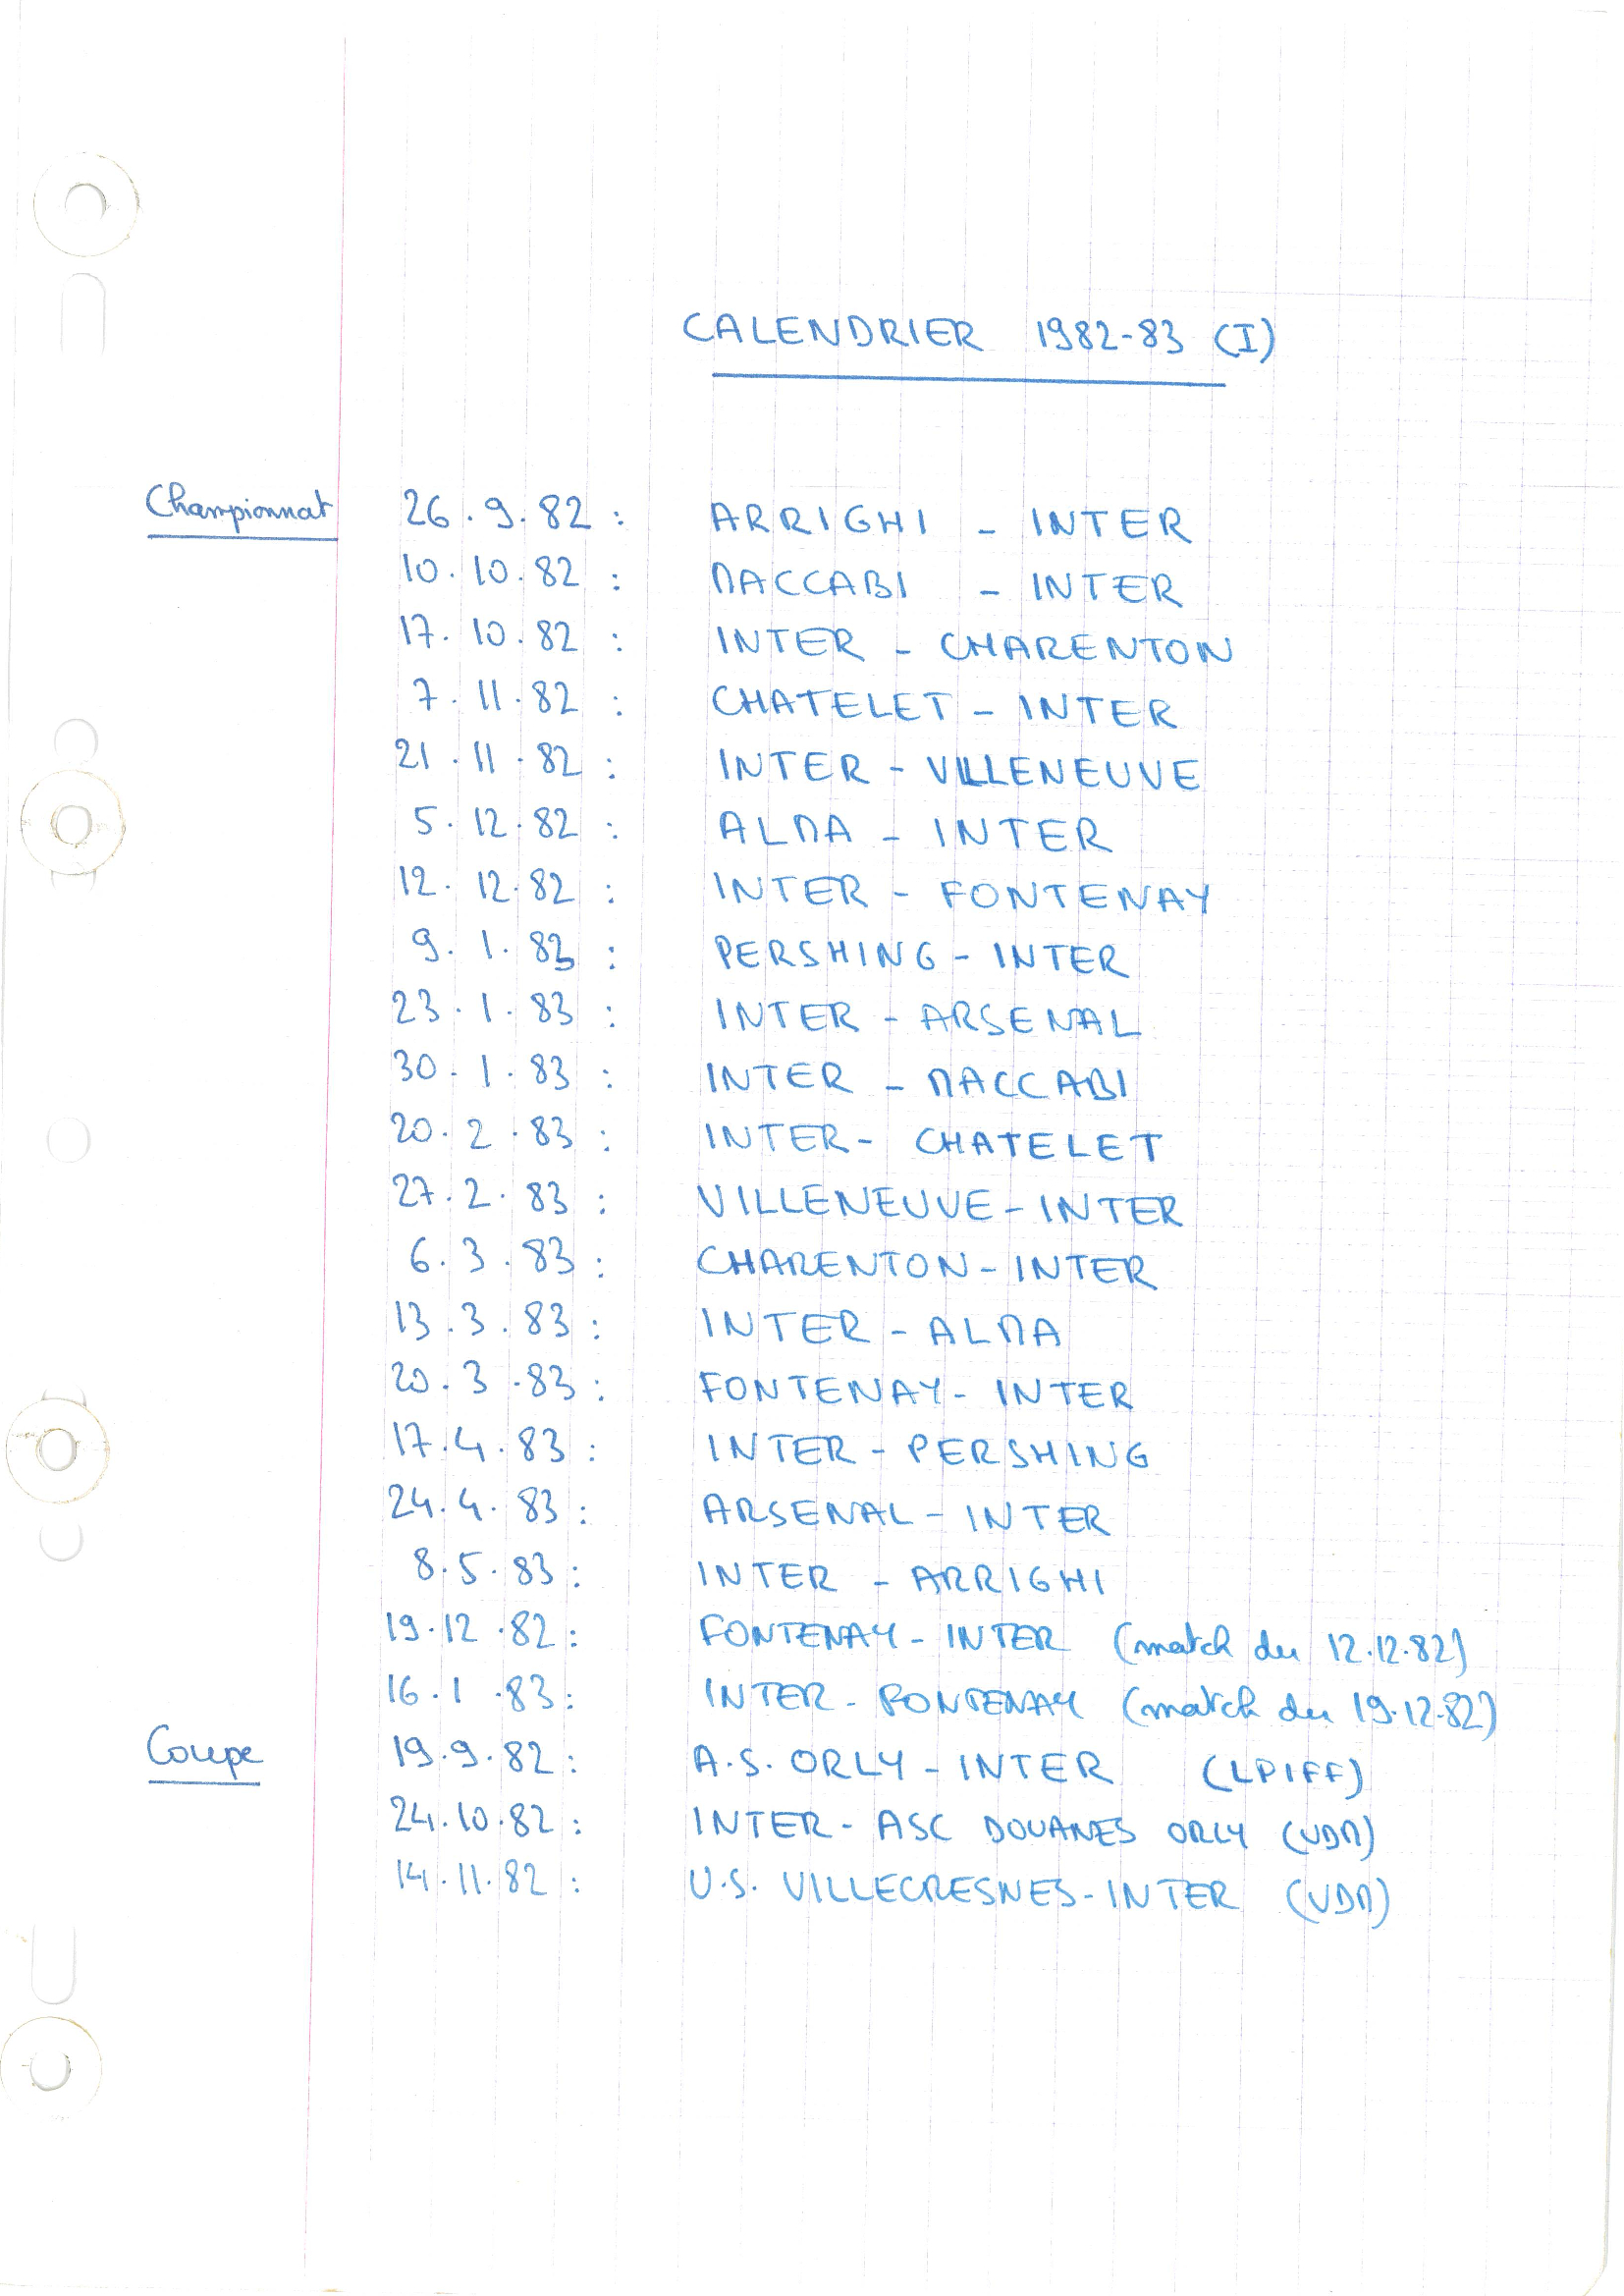 CALENDRIER 1982-83 (I)
Championnat 26.9.82 : ARRIGHI - INTER
10.10.82 : MACCABI - INTER
17.10.82 : INTER - CHARENTON
7.11.82 : CHATELET - INTER
21.11.82 : INTER - VILLENEUVE
5.12.82 : ALMA - INTER
12.12.82 : INTER - FONTENAY
9.1.83 : PERSHING - INTER
23.1.83 : INTER - ARSENAL
30.1.83 : INTER - MACCABI
20.2.83 : INTER - CHATELET
27.2.83 : VILLENEUVE - INTER
6.3.83 : CHARENTON - INTER
13.3.83 : INTER - ALMA
20.3.83 : FONTENAY - INTER
17.4.83 : INTER - PERSHING
24.4.83 : ARSENAL - INTER
8.5.83 : INTER - ARRIGHI
19.12.82 : FONTENAY - INTER (match du 12.12.82)
16.1.83 : INTER - FONTENAY (match du 19.12.82)
Coupe 19.9.82 : A.S. ORLY - INTER (LPIFF)
24.10.82 : INTER - ASC DOUANES ORLY (VDM)
14.11.82 : U.S. VILLECRESNES - INTER (VDM)